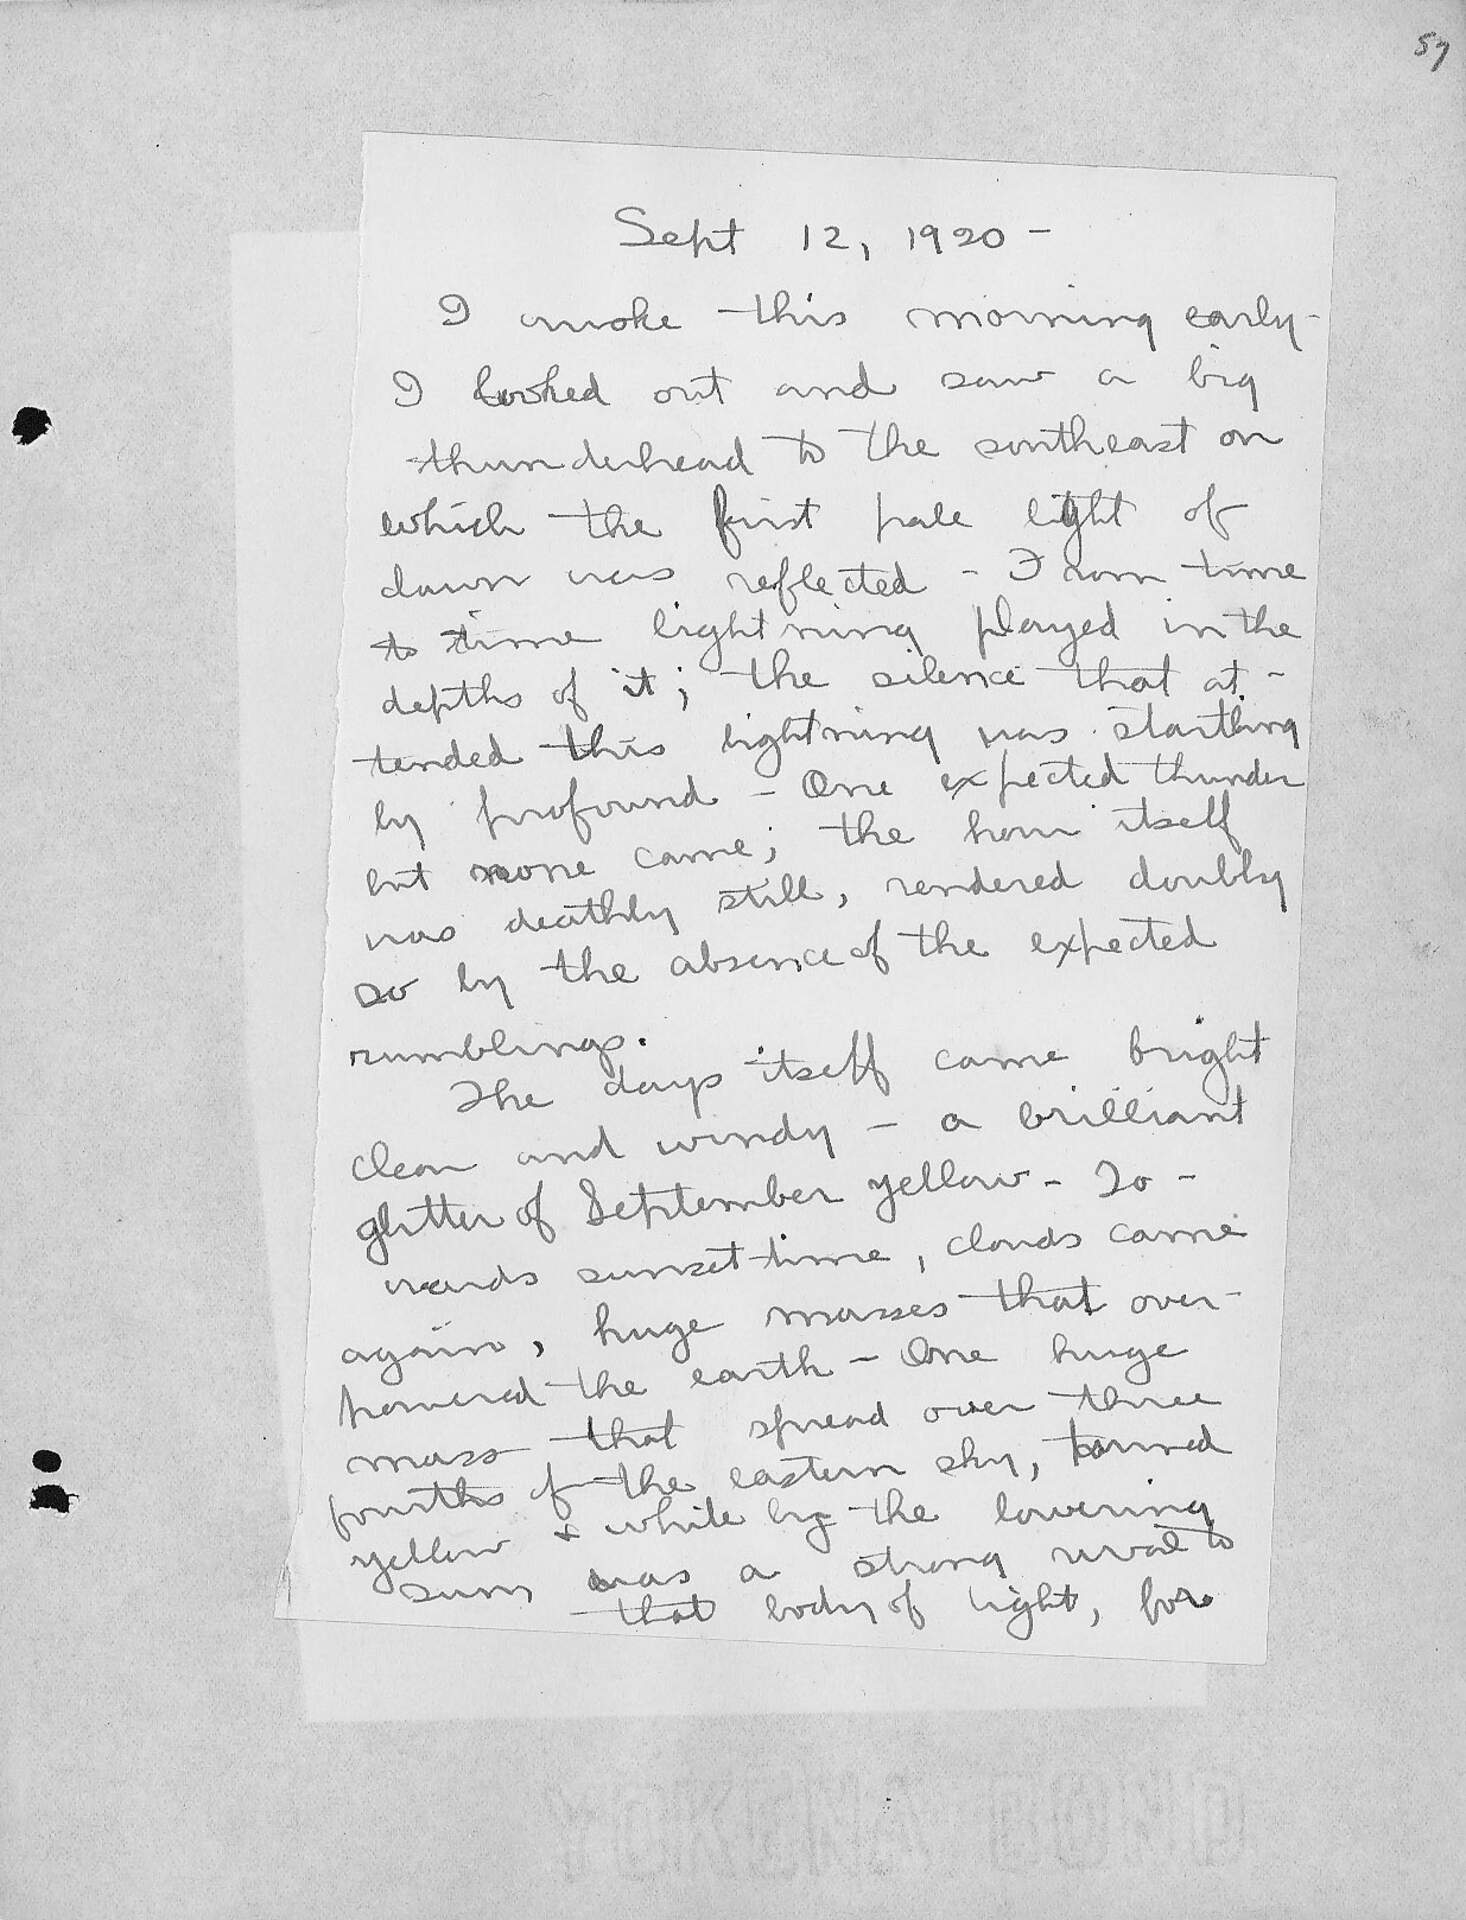 57
Sept 12, 1920 -
I awoke this morning early -
I looked out and saw a big
thunderhead to the southeast on
which the first pale light of
dawn was reflected - From time
to time lightning played in the
depths of it; the silence that at-
tended this lightning was startling
ly profound - One expected thunder
but none came; the hour itself
was deathly still, rendered doubly
so by the absence of the expected
rumblings.
The days itself came bright
clear and windy - a brilliant
glitter of September yellow - To -
wards sunset time, clouds came
again, huge masses that over-
powered the earth - One huge
mass that spread over three
fourths of the eastern sky, turned
yellow & white by the lowering
sun was a strong rival to
that body of light, for